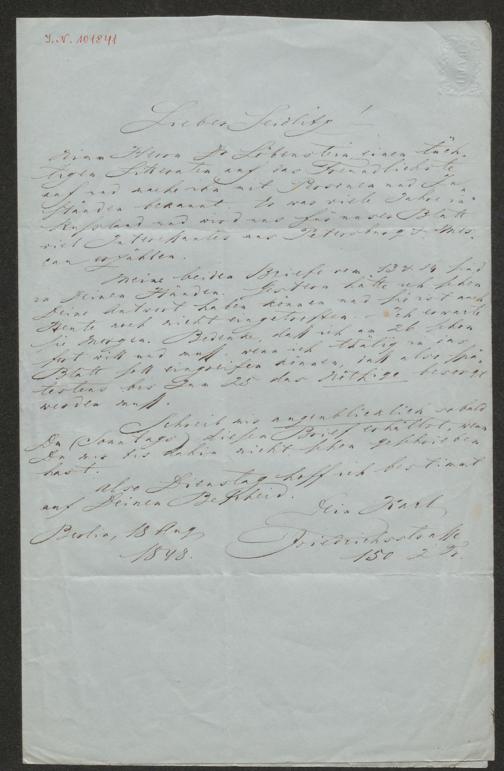 I.N. 101841
Lieber Seidlitz!
Nimm Herrn Dr Löbenstein einen tüch-
tigen Literaten auf das Freundlichste
auf und mache ihn mit Personen und Zu-
ständen bekannt. Er war viele Jahre in
Russland und wird uns für unser Blatt
viel Interessantes aus Petersburg &
erzählen.
Meine beiden Briefe vom 13 & 14 sind
in Deinen Händen. Gestern hätte ich schon
Deine Antwort haben können und sie ist auch
Heute noch nicht eingetroffen. Ich erwarte
sie Morgen. Bedenke, daß ich am 26 schon
fort will und muß, wenn ich thätig in das
Blatt soll eingreifen können, daß also spä-
testens bis zum 25 das Nöthige besorgt
werden muß.
Schreib mir augenblicklich sobald
Du (Sonntags) diesen Brief erhältst, wenn
Du mir bis dahin nicht schon geschrieben
hast.
Also Dienstag hoff ich bestimmt
auf Deinen Bescheid.
Dein Karl
Berlin, 18 Aug
1848.
Friedrichsstraße
150 2 Tr.